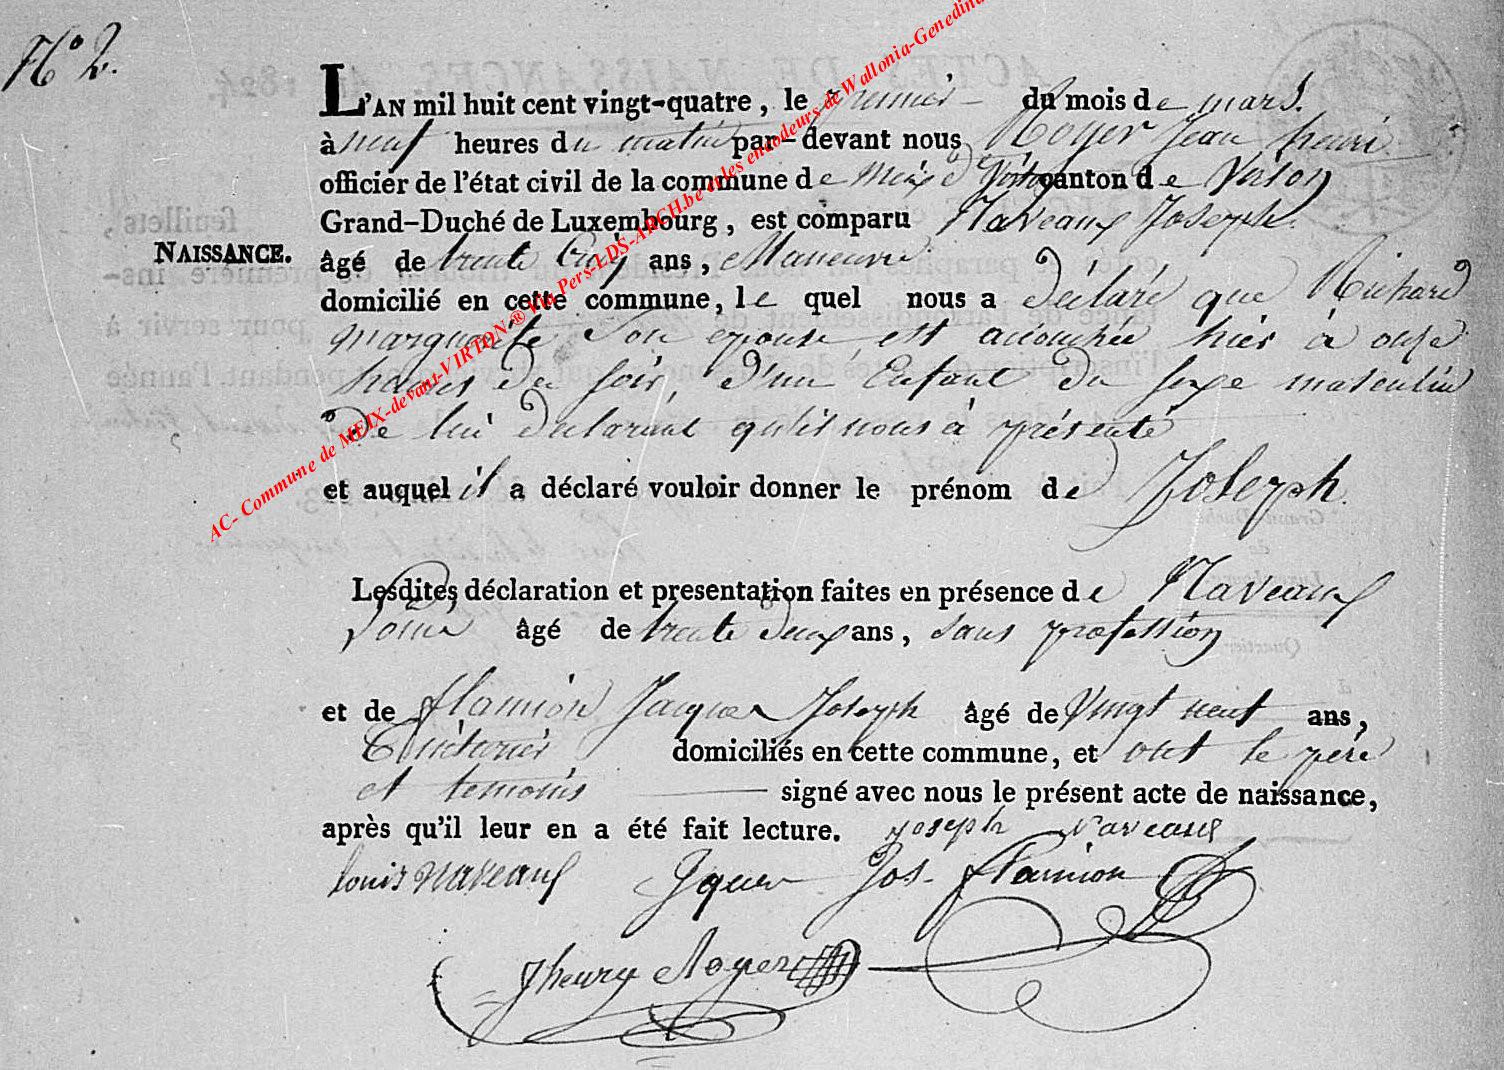 N° 2.
L'AN mil huit cent vingt-quatre, le premier du mois de mars.
à neuf heures du matin par-devant nous Royer Jean henri
officier de l'état civil de la commune de Meix dt Virton canton de Virton
Grand-Duché de Luxembourg, est comparu Naveaux Joseph.
NAISSANCE.
âgé de trente cinq ans, Maneuvre
domicilié en cette commune, le quel nous a déclaré que Richard
marguerite Son epouse est accouchée hier à onze
heures du soir d'un Enfant du sexe masculin
de lui declarant qu'il nous à présenté
et auquel il a déclaré vouloir donner le prénom de Joseph.
Lesdites déclaration et presentation faites en présence de Naveaux
Louis âgé de trente deux ans, sans profession
et de flamion Jacques Joseph âgé de Vingt neuf ans,
domiciliés en cette commune, et ont le père
et temoins signé avec nous le présent acte de naissance,
après qu'il leur en a été fait lecture. Joseph naveaux
louis naveaux Jques Jos. flamion
Jhenry Royer
AC- Commune de MEIX-devant-VIRTON ® Via Pers-LDS-ARCH.be et les encodeurs de Wallonia-Genedina